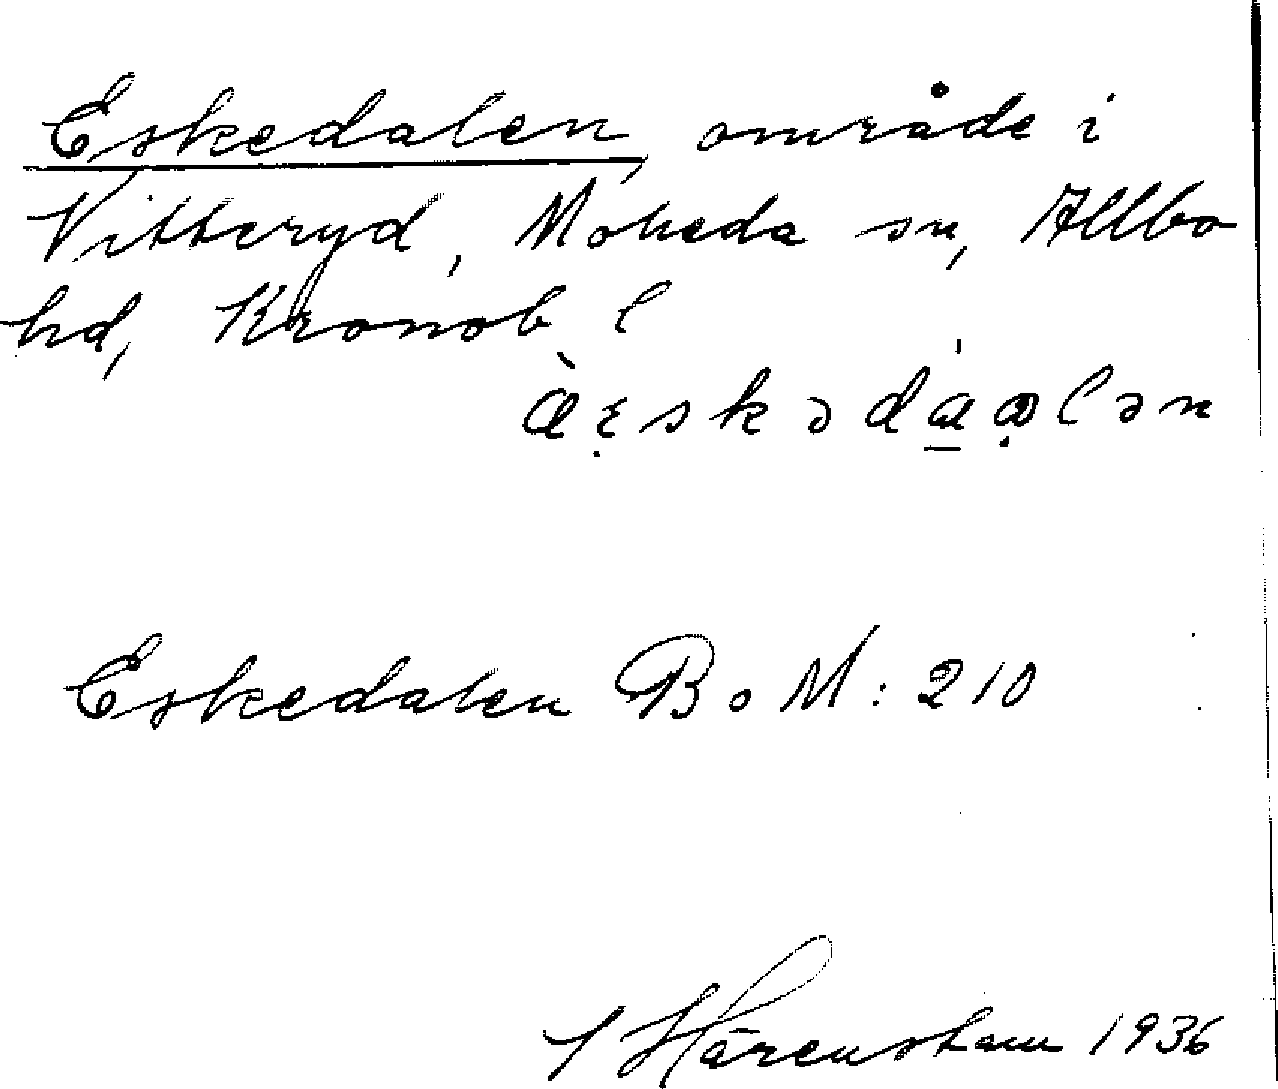 Eskedalen, område i
Vitteryd, Moheda sn, Allbo
hd, Kronob l
Eskedalen B o M: 210
Härenstam 1936